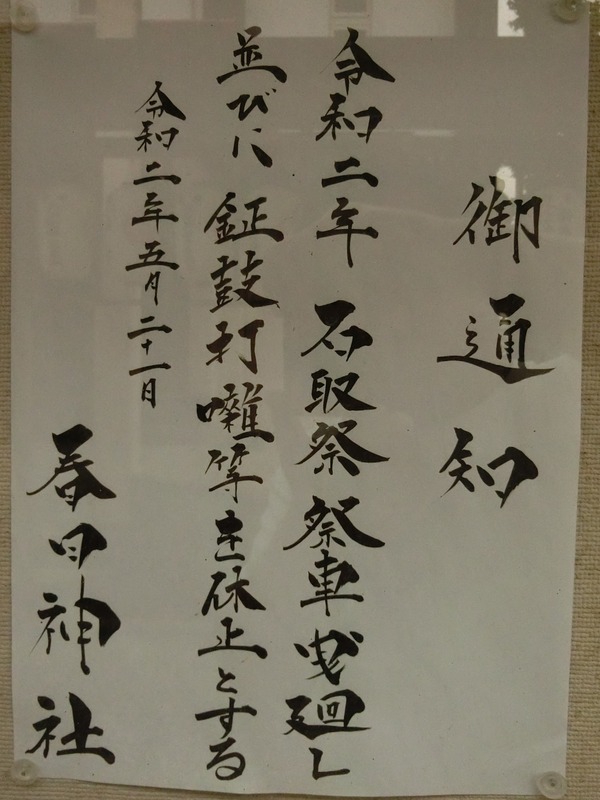 御通知
令和二年 石取祭祭車曳廻し
並びに 鉦鼓打囃等を休止とする
令和二年五月二十一日
春日神社